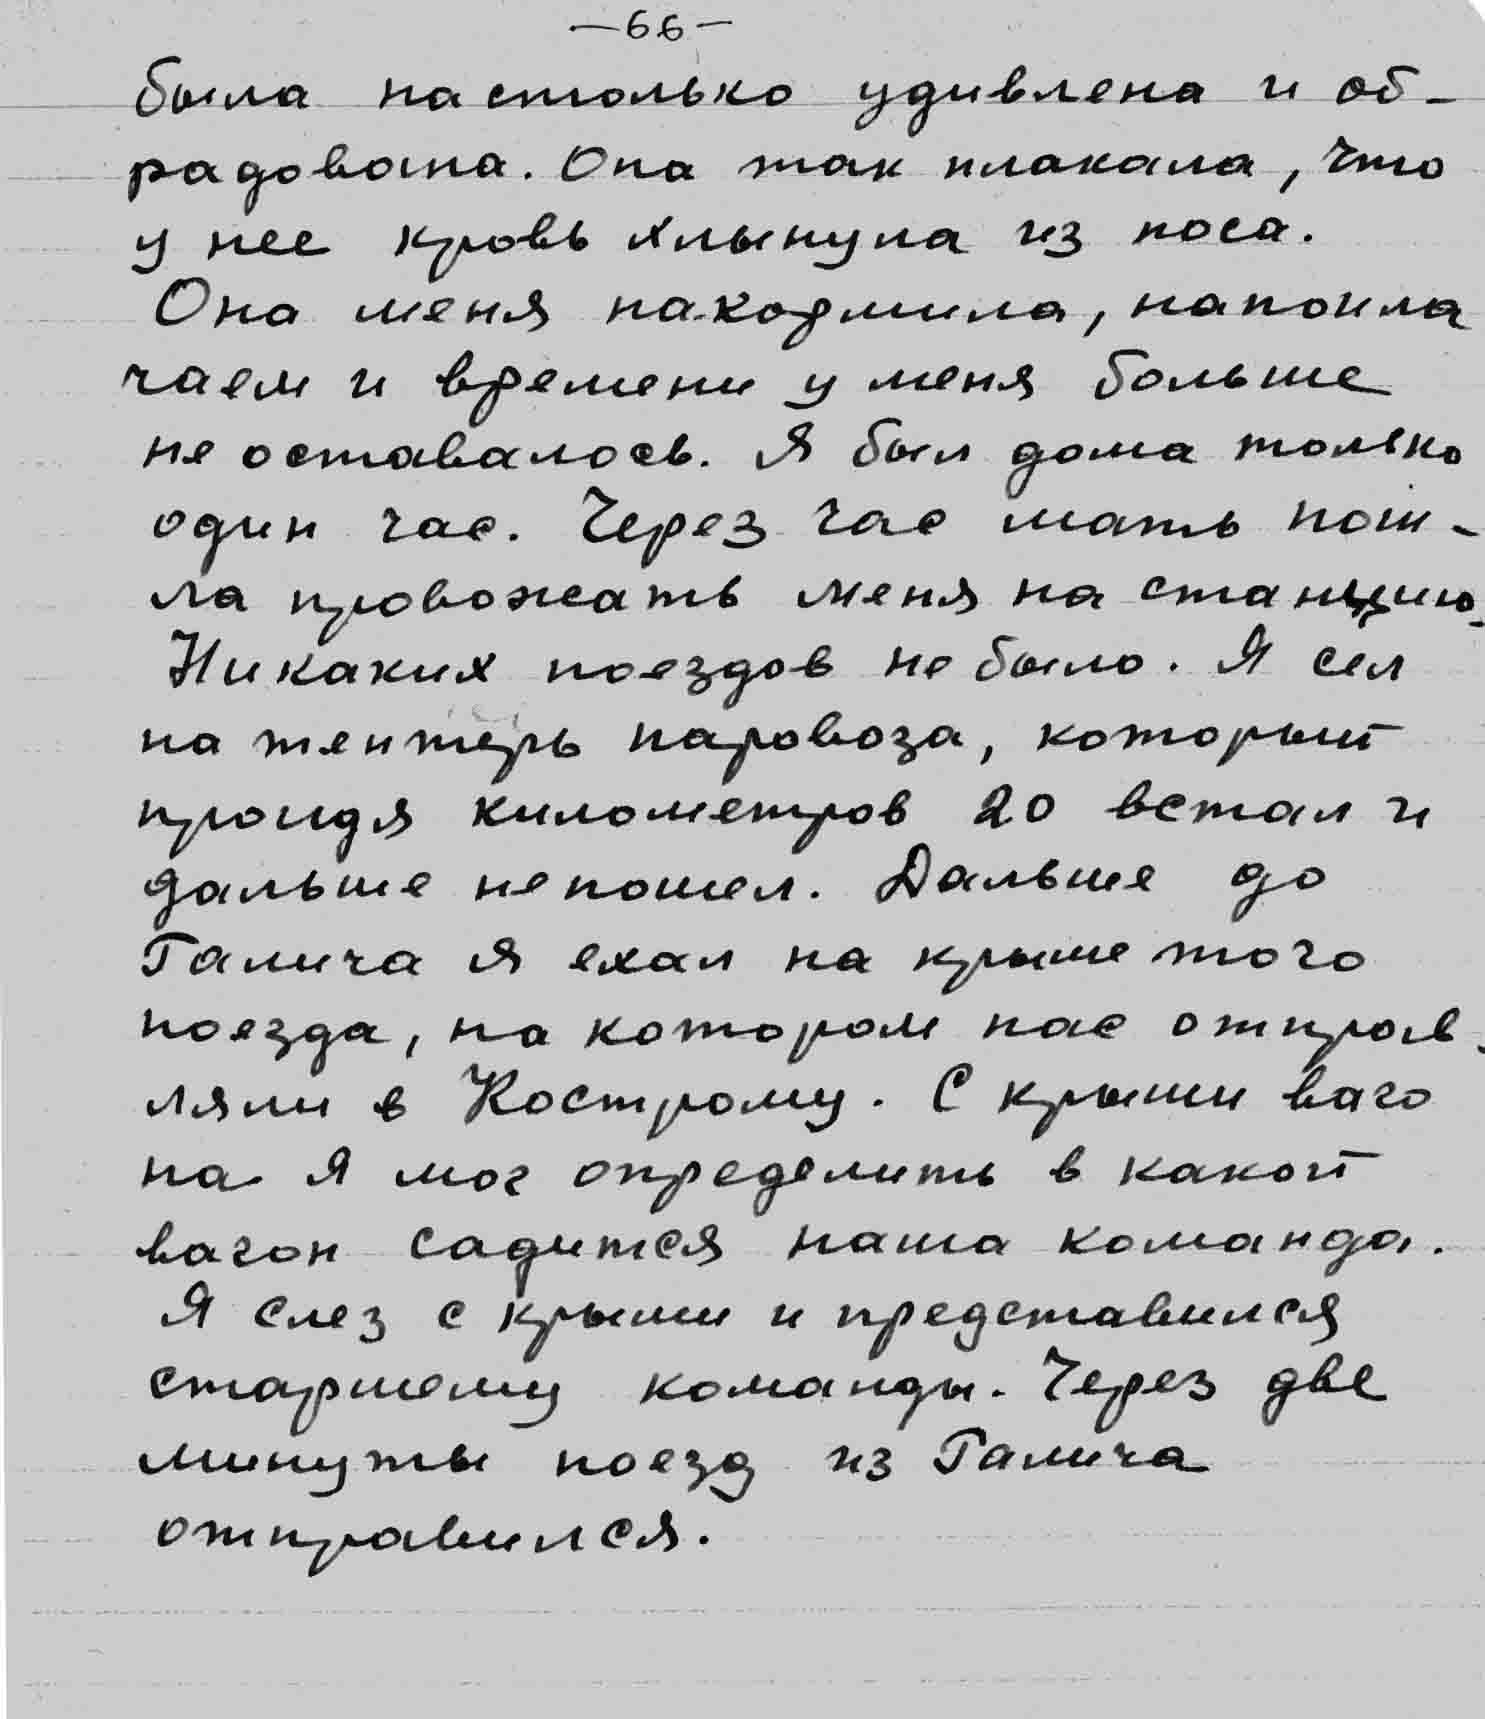 —66—
была настолько удивлена и об-
радована. Она так плакала, что
у нее кровь хлынула из носа.
Она меня накормила, напоила
чаем и времени у меня больше
не оставалось. Я был дома только
один час. Через час мать пош-
ла провожать меня на станцию.
Никаких поездов не было. Я сел
на тентерь паровоза, который
проидя километров 20 встал и
дальше непошел. Дальше до
Галича я ехал на крыше того
поезда, на котором нас отправ-
ляли в Кострому. С крыши ваго
на я мог определить в какой
вагон садится наша команда.
Я слез с крыши и представился
старшему команды. Через две
минуты поезд из Галича
отправился.